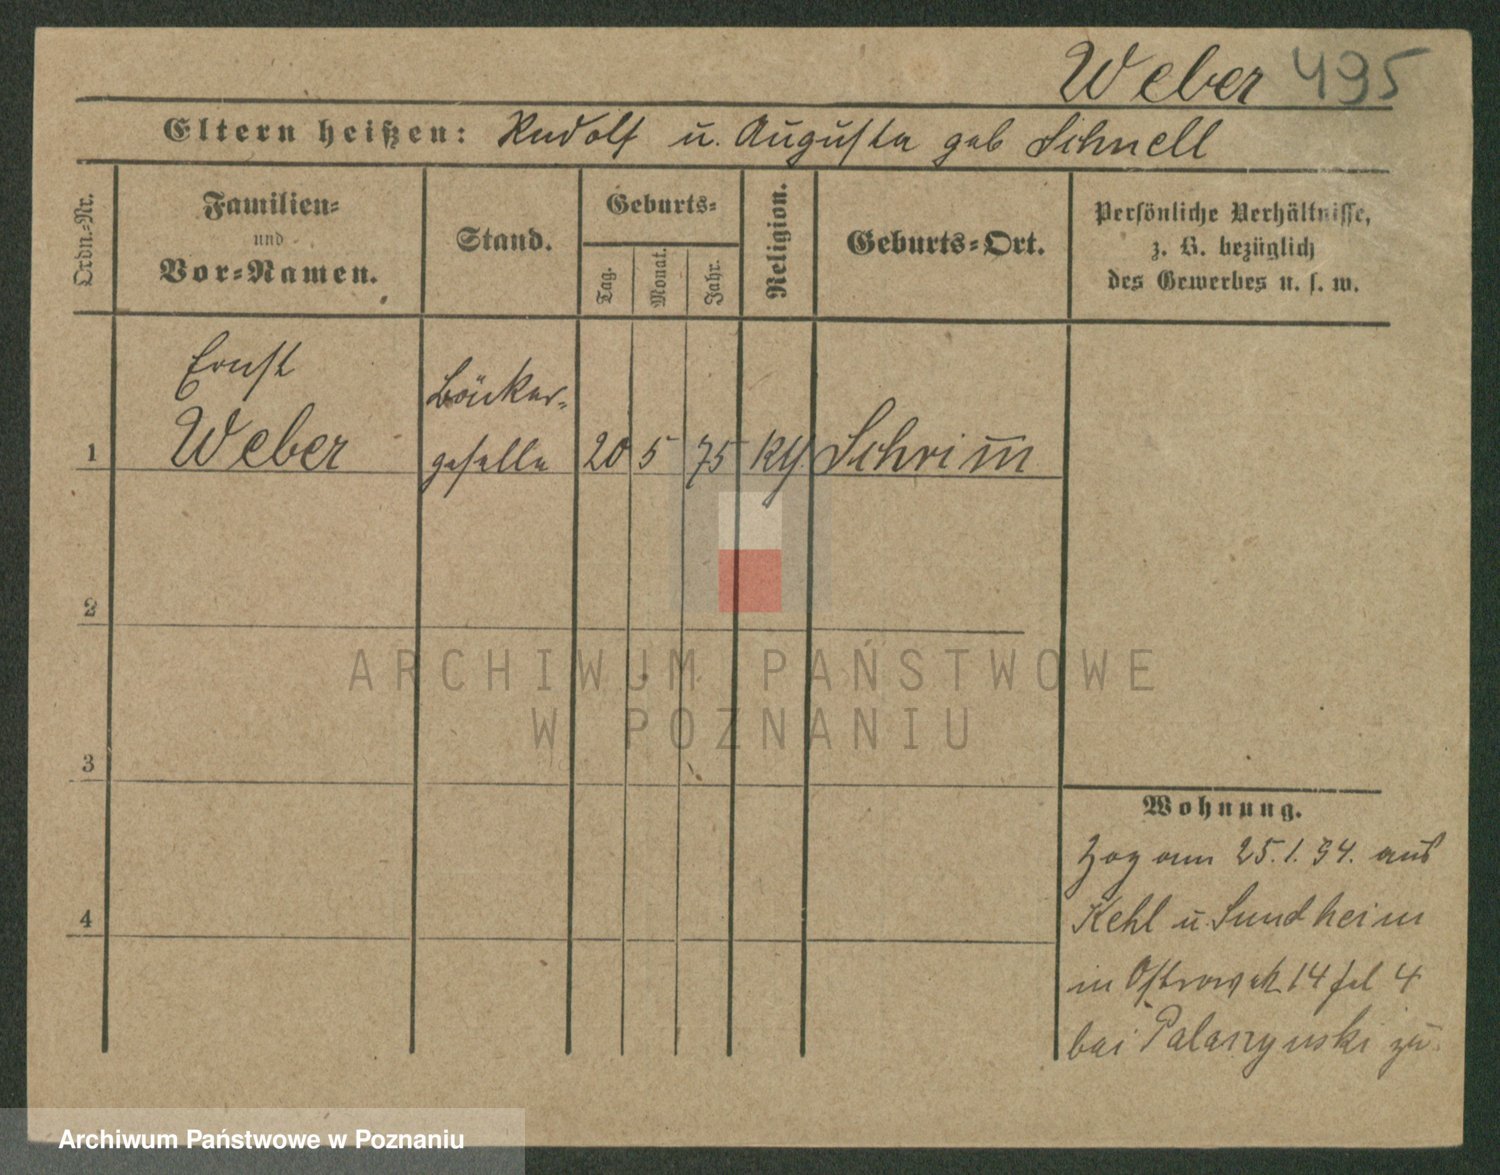 Weber 495
Eltern heißen: Rudolf u. Augusta geb Schnell
Ordn.-Nr.
Familien- und Vor-Namen.
Stand.
Geburts-
Tag.
Monat.
Jahr.
Religion.
Geburts-Ort.
Persönliche Verhältnisse,
z. B. bezüglich
des Gewerbes u. s. w.
Ernst
Weber
Bäcker-
geselle
1 20 5 75 Schrim̅
2
3
4
Wohnung.
Zog am 25.1.94. aus
Kehl u. Sundheim
in Ostrowek 14 4
bei zu.
ARCHIWUM PAŃSTWOWE
W POZNANIU
Archiwum Państwowe w Poznaniu